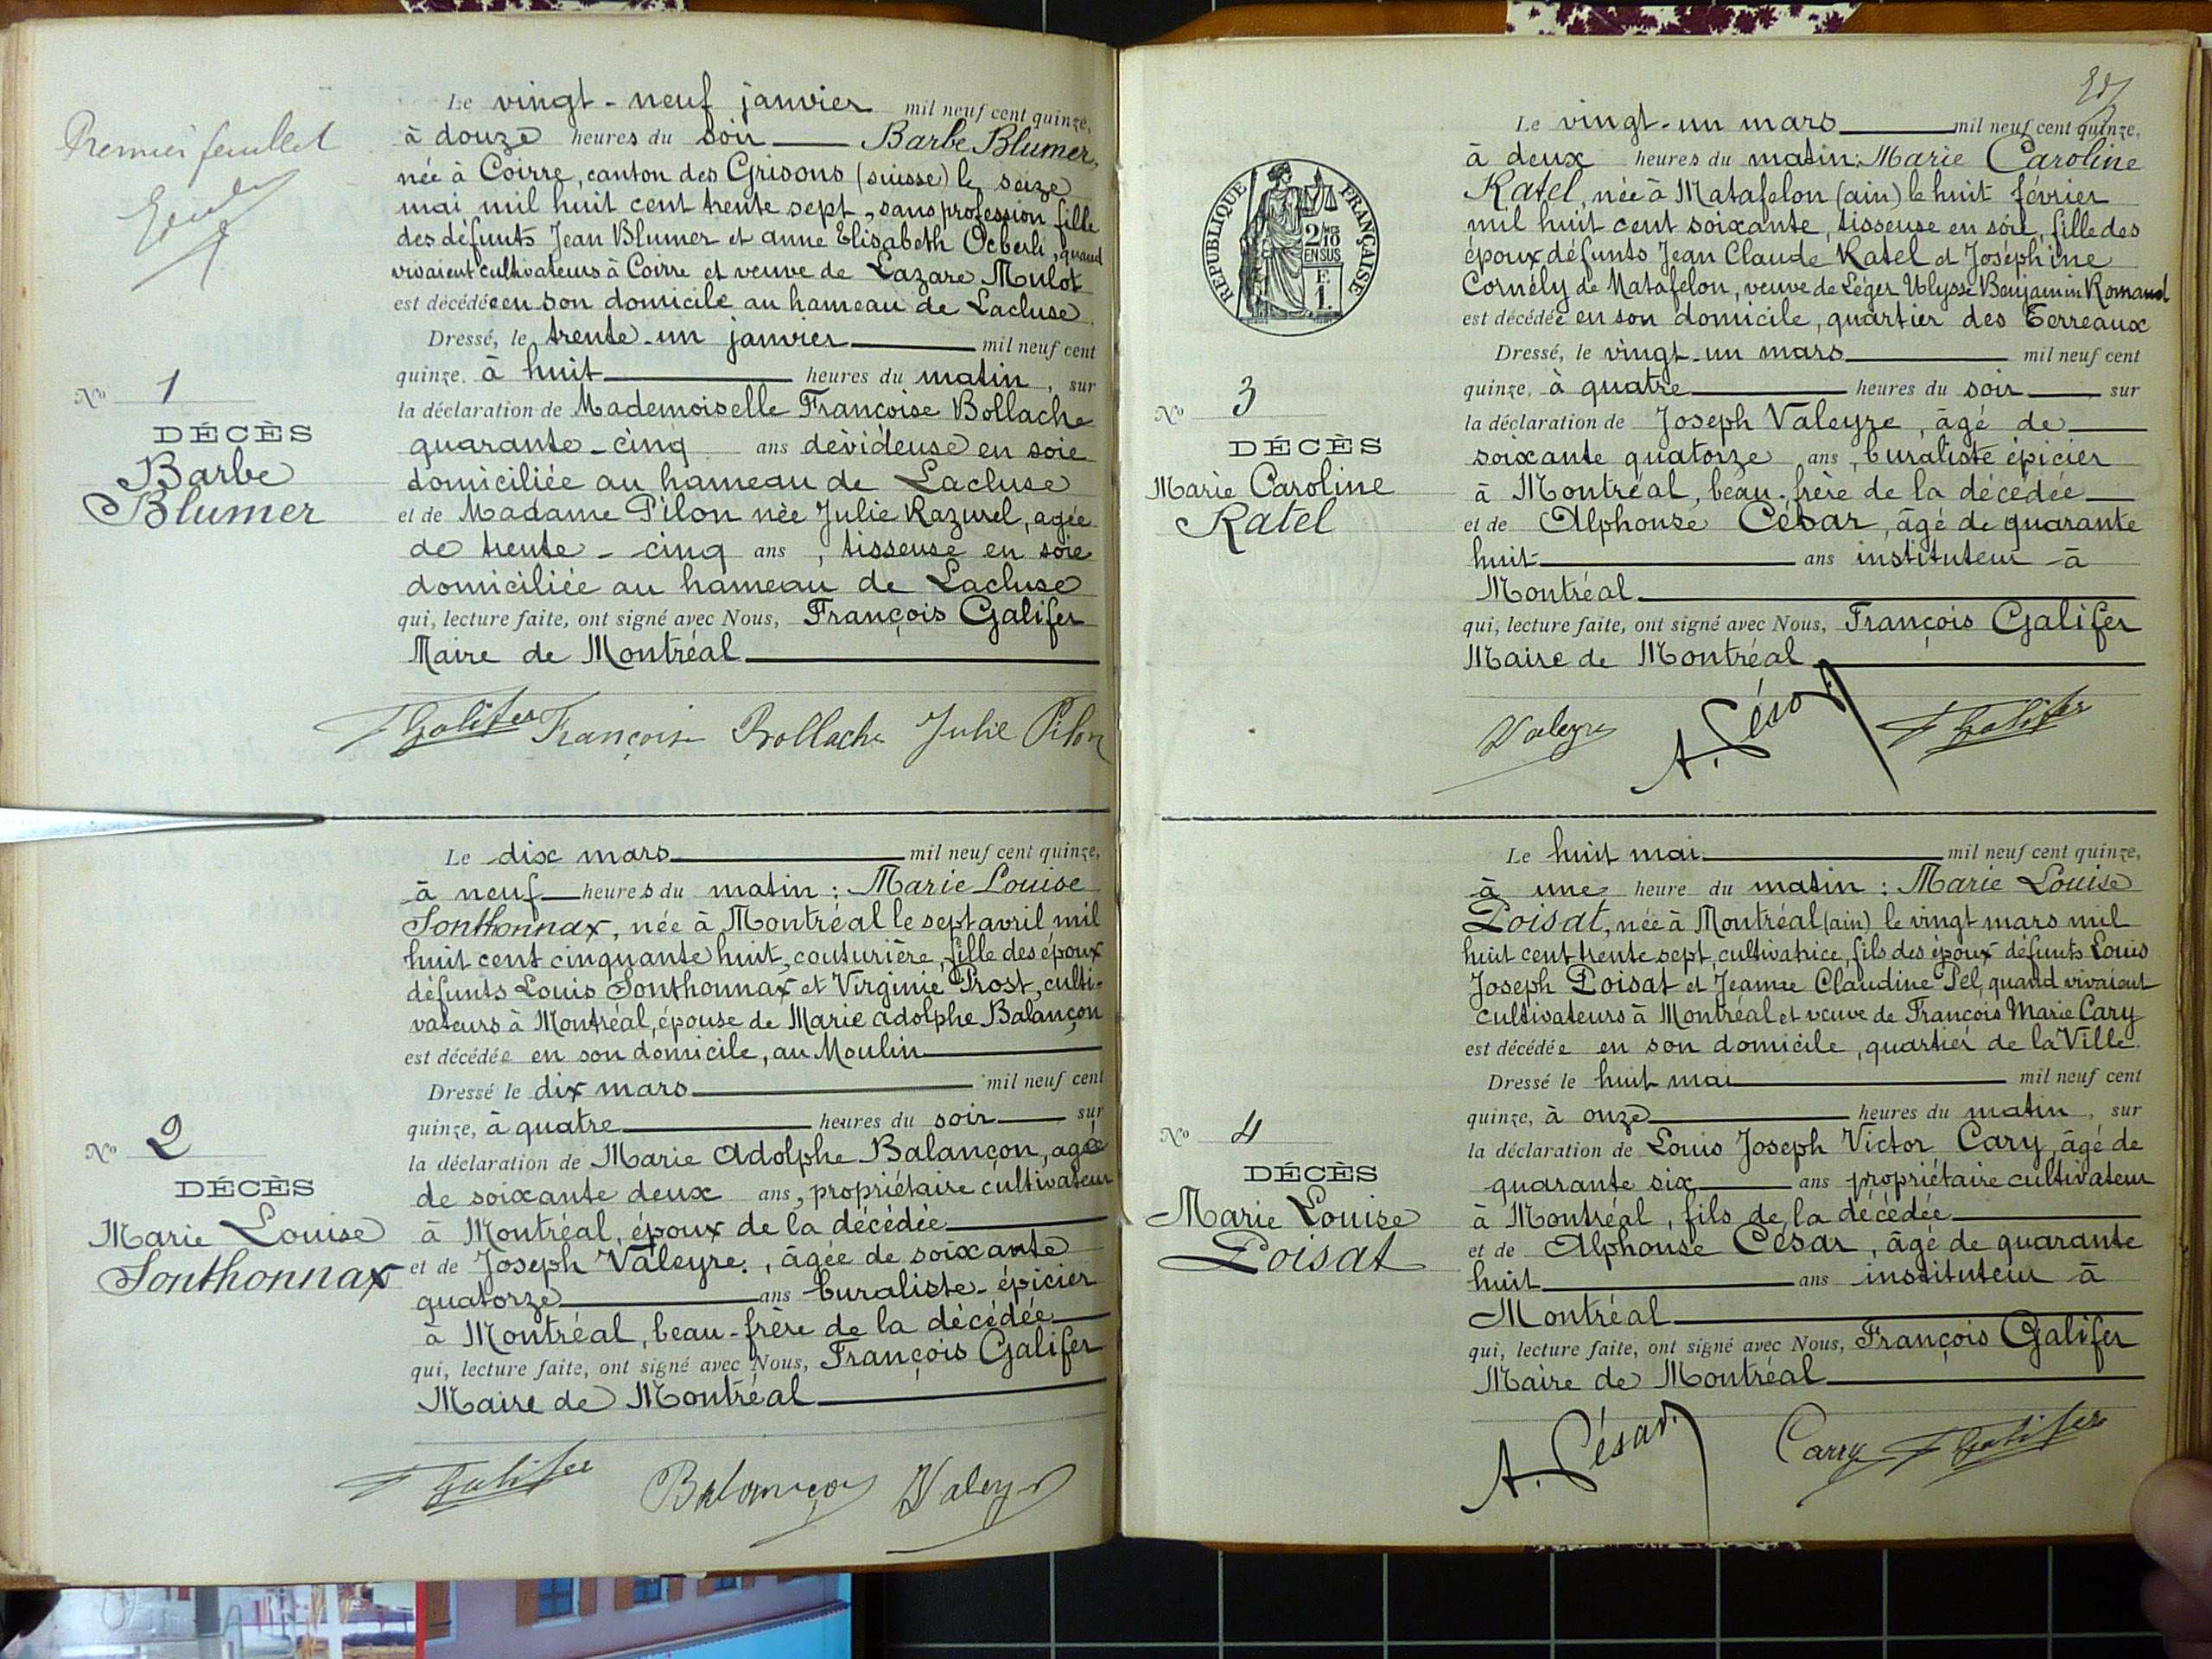 Premier feuillet
Le vingt-neuf janvier mil neuf cent quinze,
à douze heures du soir Barbe Blumer,
née à Coirre, canton des Grisons (suisse) le seize
mai mil huit cent trente sept, sans profession fille
des défunts Jean Blumer et anne Elisabeth Ocberli, quand
vivaient cultivateurs à Coirre et veuve de Lazare Mulot
est décédée en son domicile au hameau de Lacluse
Dressé, le trente-un janvier mil neuf cent
quinze, à huit heures du matin, sur
la déclaration de Mademoiselle Françoise Bollache
quarante-cinq ans dévideuse en soie
domiciliée au hameau de Lacluse
et de Madame Pilon née Julie Razurel, agée
de trente-cinq ans, tisseuse en soie
domiciliée au hameau de Lacluse
qui, lecture faite, ont signé avec Nous, François Galifer
Maire de Montréal
No 1
DÉCÈS
Barbe
Blumer
F Galifer Françoise Bollache Julie Pilon
Le dix mars mil neuf cent quinze,
à neuf heures du matin : Marie Louise
Sonthonnax, née à Montréal le sept avril mil
huit cent cinquante huit, couturière, fille des époux
défunts Louis Sonthonnax et Virginie Prost, culti-
vateurs à Montréal, épouse de Marie adolphe Balançon
est décédée en son domicile, au Moulin
Dressé le dix mars mil neuf cent
quinze, à quatre heures du soir sur
la déclaration de Marie Adolphe Balançon, agée
de soixante deux ans, propriétaire cultivateur
à Montréal, époux de la décédée
et de Joseph Valeyre, âgée de soixante
quatorze ans buraliste-épicier
à Montréal, beau-frère de la décédée
qui, lecture faite, ont signé avec Nous, François Galifer
Maire de Montréal
No 2
DÉCÈS
Marie Louise
Sonthonnax
F Galifer Balançon Valeyre
REPUBLIQUE FRANÇAISE
2/10
EN SUS
F.
1.
Le vingt-un mars mil neuf cent quinze,
à deux heures du matin : Marie Caroline
Ratel, née à Matafelon (ain) le huit février
mil huit cent soixante, tisseuse en soie, fille des
époux défunts Jean Claude Ratel et Joséphine
Cornély de Matafelon, veuve de Léger Ulysse Benjamin Romand
est décédée en son domicile, quartier des Terreaux
Dressé, le vingt-un mars mil neuf cent
quinze, à quatre heures du soir sur
la déclaration de Joseph Valeyre, âgé de
soixante quatorze ans, buraliste épicier
à Montréal, beau-frère de la décédée
et de Alphonse César, âgé de quarante
huit ans instituteur à
Montréal
qui, lecture faite, ont signé avec Nous, François Galifer
Maire de Montréal
No 3
DÉCÈS
Marie Caroline
Ratel
Valeyre A. César F Galifer
Le huit mai mil neuf cent quinze,
à une heure du matin : Marie Louise
Poisat, née à Montréal (ain) le vingt mars mil
huit cent trente sept, cultivatrice, fils des époux défunts Louis
Joseph Poisat et Jeanne Claudine Pel, quand vivaient
cultivateurs à Montréal et veuve de François Marie Cary
est décédée en son domicile, quartier de la Ville
Dressé le huit mai mil neuf cent
quinze, à onze heures du matin, sur
la déclaration de Louis Joseph Victor Cary, âgé de
quarante six ans propriétaire cultivateur
à Montréal, fils de la décédée
et de Alphonse César, âgé de quarante
huit ans instituteur à
Montréal
qui, lecture faite, ont signé avec Nous, François Galifer
Maire de Montréal
No 4
DÉCÈS
Marie Louise
Poisat
A. César Carry F Galifer